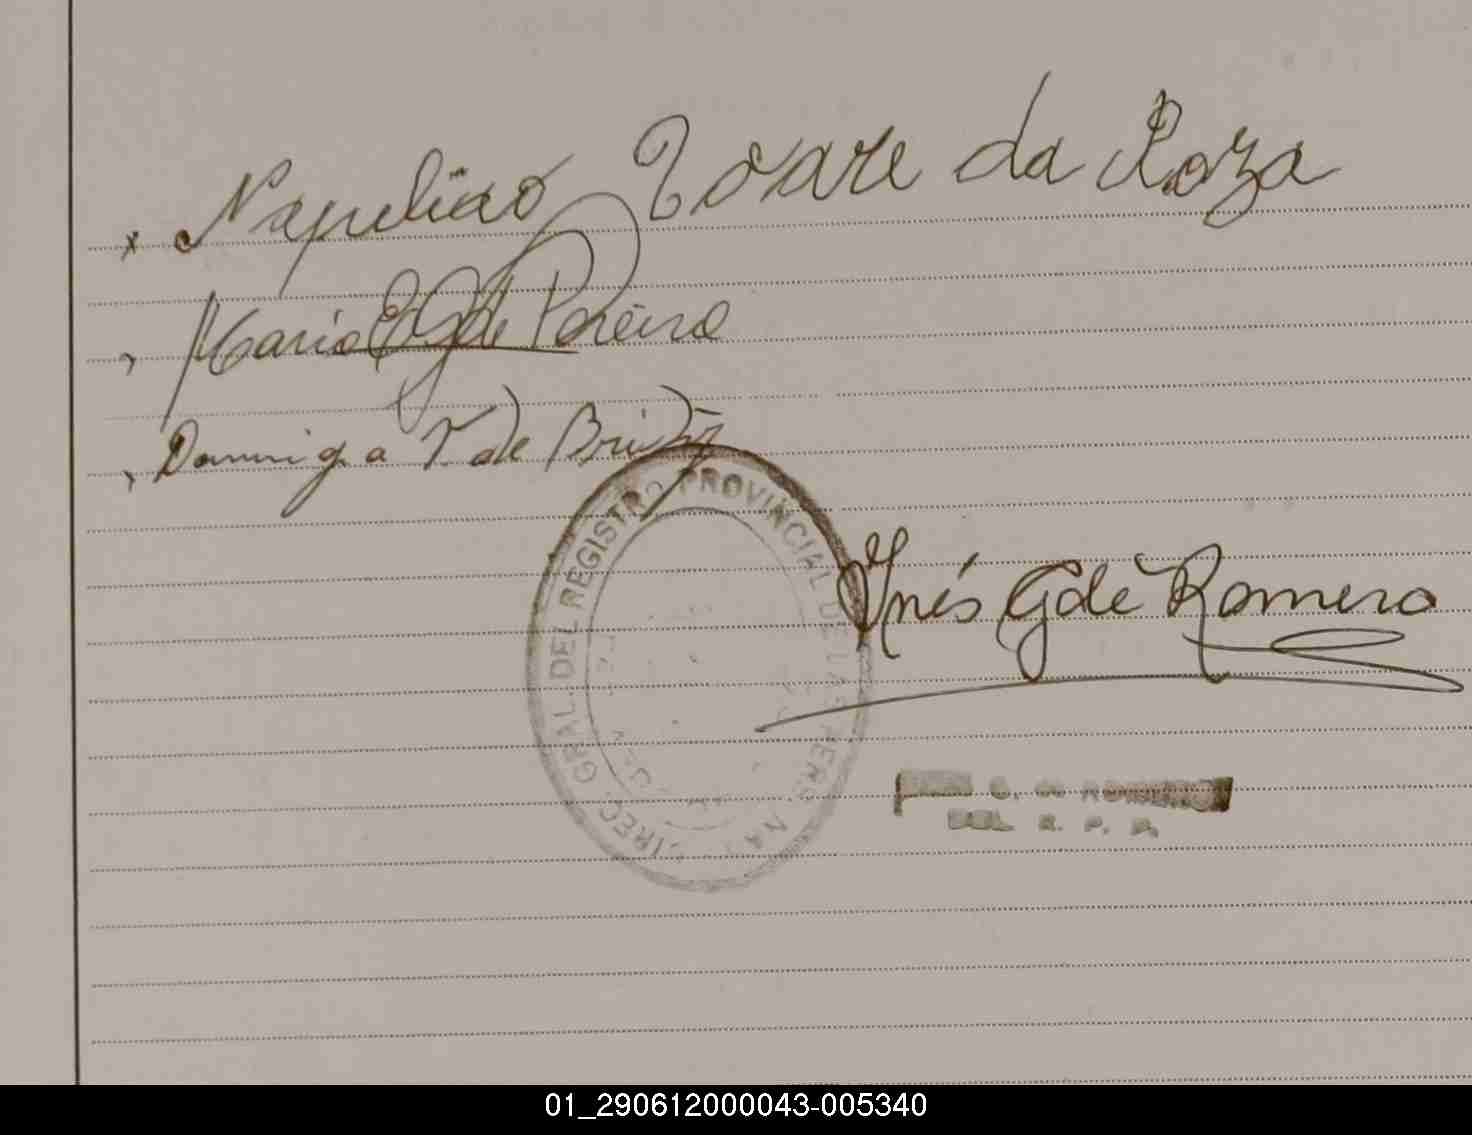 x Napelião Tovare da Roza
Maria E G de Pereira
Dominga T de Britz
DIREC. GRAL. DEL REGISTRO PROVINCIAL DE LAS PERSONAS
Inés G de Romero
G. de ROMERO
DEL R. P. P.
01_290612000043-005340